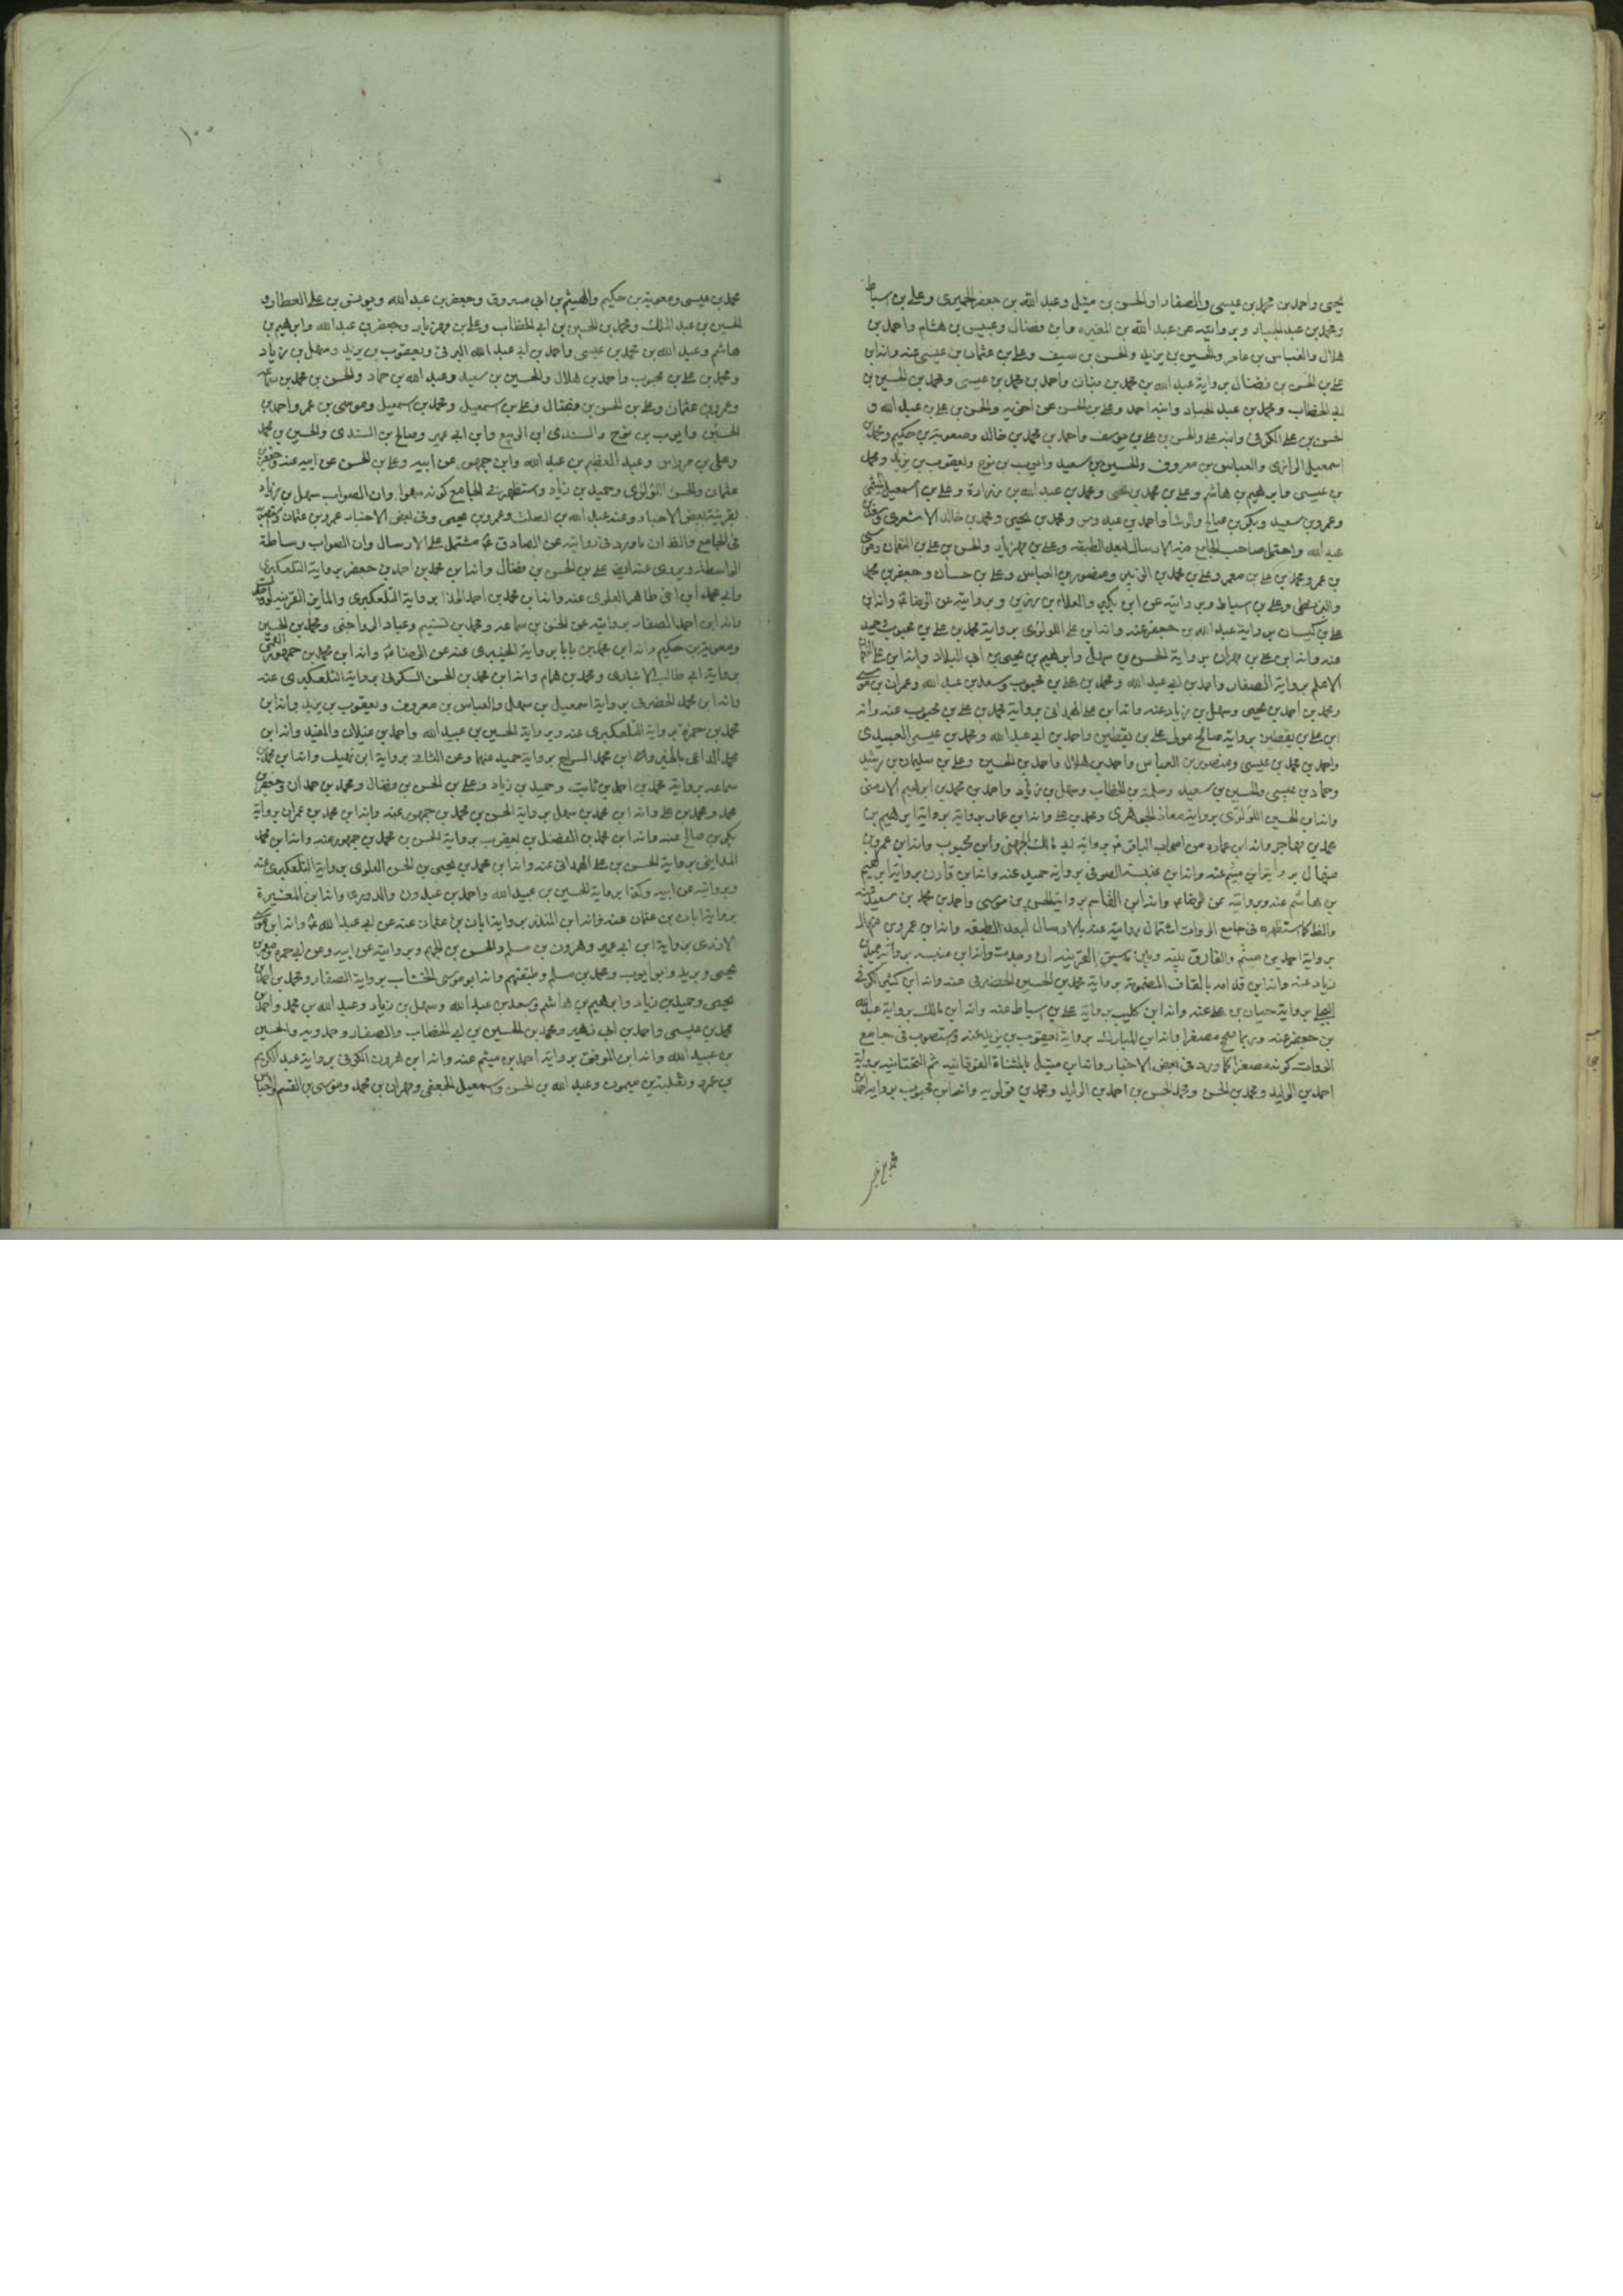 يحيى واحمد بن محمد بن عيسى والصفار والحسن بن متيل وعبد الله بن جعفر الحميرى وعلى بن اسباط
ومحمد بن عبد الجبار وبروايته عن عبد الله بن المغيره وابن فضال وعبيس بن هشام واحمد بن
هلال والعباس بن عامر والحسين بن يزيد والحسن بن سيف وعلى بن عثمان بن عيسى عنه وانه ابن
على بن الحسن بن فضال برواية عبد الله بن محمد بن بنان واحمد بن محمد بن عيسى ومحمد بن الحسين بن
ابى الخطاب ومحمد بن عبد الجبار وابنه احمد وعلى بن الحسن عن اخويه والحسن بن على بن عبد الله و
الحسن بن على الكوفى وابنه على والحسن بن على بن يوسف واحمد بن محمد بن خالد ومعوية بن حكيم ومحمد بن
اسمعيل الرازى والعباس بن معروف والحسين بن سعيد وايوب بن نوح ويعقوب بن يزيد ومحمد
بن عيسى وابرهيم بن هاشم وعلى بن محمد بن يحيى ومحمد بن عبد الله بن زرارة وعلى بن اسمعيل الميثمى
وعمرو بن سعيد وبكر بن صالح والوشا واحمد بن عبدوس ومحمد بن يحيى ومحمد بن خالد الاشعرى
عبد الله واحتمل صاحب الجامع فيه الارسال لبعد الطبقه وعلى بن مهزيار والحسن بن على بن النعمان وموسى
بن عمر ومحمد بن على بن معمر وعلى بن محمد بن الزبير ومنصور بن العباس وعلى بن حسان وجعفر بن محمد
وعلى بن اسباط وبروايته عن ابن بكير والعلاء بن رزين وبروايته عن الرضا ع وانه ابن
على بن كيسان برواية عبد الله بن جعفر عنه وانه ابن على اللولوى برواية محمد بن على بن محبوب وحميد
عنه وانه ابن على بن مهران برواية الحسن بن سهل وابرهيم بن يحيى بن ابى البلاد وانه ابن على
الاعلم برواية الصفار واحمد بن ابى عبد الله ومحمد بن على بن محبوب وسعد بن عبد الله وعمران بن موسى
ومحمد بن احمد بن يحيى وسهل بن زياد عنه وانه ابن على الهمدانى برواية محمد بن على بن محبوب عنه وانه
ابن على بن يقطين برواية صالح مولى على بن يقطين واحمد بن ابى عبد الله ومحمد بن عيسى العبيدى
واحمد بن محمد بن عيسى ومنصور بن العباس واحمد بن هلال واحمد بن الحسين وعلى بن سليمان بن رشيد
وحماد بن عيسى والحسين بن سعيد وسلمة بن الخطاب وسهل بن زياد واحمد بن محمد بن ابرهيم الارمنى
وانه ابن الحسين اللولوى برواية معاذ الجوهرى ومحمد بن على وانه ابن عمار برواية برواية ابرهيم بن
محمد بن مهاجر وانه ابن عماره من اصحاب الباقر ع برواية ابى مالك الجهنى وابن محبوب وانه ابن عمرو بن
منهال برواية ابن ميثم عنه وانه ابن عنبسة الصوفى برواية حميد عنه وانه ابن قارن برواية ابرهيم
بن هاشم عنه وبروايته عن الرضا ع وانه ابن القاسم برواية الحسن بن موسى واحمد بن محمد بن سعيد عنه
والظ كما استظهره فى جامع الروات اشتمال روايته عنه بالارسال لبعد الطبقه وانه ابن عمرو بن منهال
برواية احمد بن ميثم والفارق بينه وبين سبق القرينه ان وجدت وانه ابن عنبسه برواية حميد بن
زياد عنه وانه ابن قدامه بالقاف المضمومة برواية محمد بن الحسين الحضرمى عنه وانه ابن كثير الكوفى
البجلى برواية حيان بن على عنه وانه ابن كليب برواية على بن اسباط عنه وانه ابن مالك برواية عبد الله
بن جعفر عنه وربما صحح مصغرا وانه ابن المبارك برواية يعقوب بن يزيد عنه واستصوب فى جامع
الروات كونه مصغرا كما ورد فى بعض الاخبار وانه ابن متيل بالمثناة الفوقانيه ثم التحتانيه برواية
احمد بن الوليد ومحمد بن الحسن ومحمد الحسن بن احمد بن الوليد ومحمد بن قولويه وانه ابن محبوب برواية احمد بن
محمد بن عيسى
١٠٠
محمد بن عيسى ومعوية بن حكيم والهيثم بن ابى مسروق وجعفر بن عبد الله ويونس بن على العطار و
الحسين بن عبد الملك ومحمد بن الحسين بن ابى الخطاب وعلى بن مهزيار وجعفر بن عبد الله وابرهيم بن
هاشم وعبد الله بن محمد بن عيسى واحمد بن ابى عبد الله البرقى ويعقوب بن يزيد وسهل بن زياد
ومحمد بن على بن محبوب واحمد بن هلال والحسين بن سعيد وعبد الله بن حماد والحسن بن محمد بن سماعه
وعمرو بن عثمان وعلى بن الحسن بن فضال وعلى بن اسمعيل ومحمد بن اسمعيل وموسى بن عمر واحمد بن
الحسين وايوب بن نوح والسندى ابن الربيع وابن ابى عمير وصالح بن السندى والحسين بن محمد
وعلى بن مرداس وعبد العظيم بن عبد الله وابن جمهور عن ابيه وعلى بن الحسن عن ابيه عنه وجعفر بن
عثمان والحسن اللولوى وحميد بن زياد واستظهر فى الجامع كونه سهوا وان الصواب سهل بن زياد
بقرينة بعض الاخبار وعنه عبد الله بن الصلت وعمرو بن يحيى وفى بعض الاخبار عمرو بن عثمان
فى الجامع والظ ان ما ورد فى روايته عن الصادق ع مشتمل على الارسال وان الصواب وساطة
الواسطة ويروى عنه ايض على بن الحسن بن فضال وانه ابن محمد بن احمد بن جعفر برواية التلعكبرى
وابى محمد ابن اخى طاهر العلوى عنه وانه ابن محمد بن احمد الحذا برواية التلعكبرى والمايز القرينه
وانه ابن احمد الصفار بروايته عن الحسن بن سماعه ومحمد بن تسنيم وعباد الرواجنى ومحمد بن الحسين
ومعوية بن حكيم وانه ابن محمد بن بابا برواية العبيدى عنه عن الرضا ع وانه ابن محمد بن جمهور العمى
برواية ابى طالب الانبارى ومحمد بن همام وانه ابن محمد بن الحسن السكونى برواية التلعكبرى عنه
وانه ابن محمد الحضرمى برواية اسمعيل بن سهل والعباس بن معروف ويعقوب بن يزيد وانه ابن
محمد بن حمزة برواية التلعكبرى عنه وبرواية الحسين بن عبيد الله واحمد بن عبدون والمفيد وانه ابن
محمد الداعى بالخير وانه ابن محمد السراج برواية حميد عنهما وعن الثانى برواية ابن نهيك وانه ابن محمد بن
سماعه برواية محمد بن احمد بن ثابت وحميد بن زياد وعلى بن الحسن بن فضال ومحمد بن حمدان وجعفر بن
محمد ومحمد بن على وانه ابن محمد بن سهل برواية الحسن بن محمد بن جمهور عنه وانه ابن محمد بن عمران برواية
بكر بن صالح عنه وانه ابن محمد بن الفضل بن يعقوب برواية الحسن بن محمد بن جمهور عنه وانه ابن محمد
المداينى برواية الحسن بن على الهمدانى عنه وانه ابن محمد بن يحيى بن الحسن العلوى برواية التلعكبرى عنه
وبروايته عن ابيه وكذا برواية الحسين بن عبيد الله واحمد بن عبدون والدورى وانه ابن المغيرة
برواية ابان بن عثمان عنه وانه ابن المنذر برواية ابان بن عثمان عنه عن ابى عبد الله ع وانه ابن موسى
الازدى برواية ابن ابى عمير وهرون بن مسلم والحسن بن الجهم وبروايته عن ابيه وعن ابى حمزه
يحيى وبريد وابو ايوب ومحمد بن مسلم وطبقتهم وانه ابو موسى الخشاب برواية الصفار ومحمد بن احمد بن
يحيى وحميد بن زياد وابرهيم بن هاشم وسعد بن عبد الله وسهل بن زياد وعبد الله بن محمد واحمد بن
محمد بن عيسى واحمد بن ابى زهير ومحمد بن الحسين بن ابى الخطاب والصفار وحمدويه والحسين
بن عبيد الله وانه ابن الموفق برواية احمد بن ميثم عنه وانه ابن هرون الكوفى برواية عبد الكريم
بن عمرو وثعلبة بن ميمون وعبد الله بن الحسن واسمعيل الجعفى ومهران بن محمد وموسى بن القسم